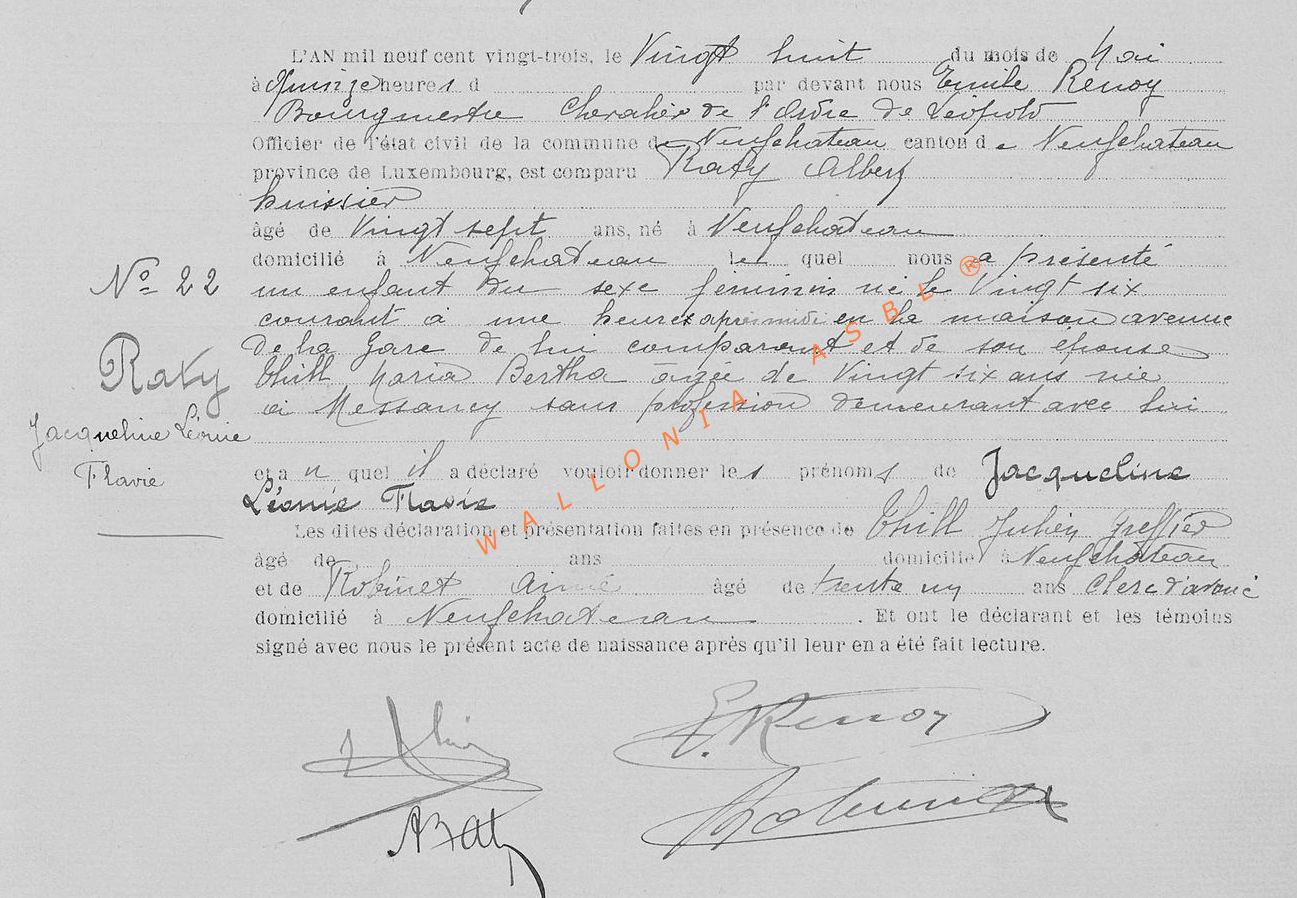 L'AN mil neuf cent vingt-trois, le Vingt huit du mois de Mai
à Quinze heures d par devant nous Emile Renoy
Bourgmestre Chevalier de l'Ordre de Léopold
Officier de l'état civil de la commune de Neufchateau canton de Neufchateau
province de Luxembourg, est comparu Raty Albert
huissier
âgé de Vingt sept ans, né à Neufchateau
domicilié à Neufchateau lequel nous a présenté
Nº 22
un enfant du sexe feminin né le Vingt six
courant à une heures après midi en la maison avenue
De la Gare de lui comparant et de son épouse
Thill Maria Bertha agée de Vingt six ans née
à Messancy sans profession demeurant avec lui
Raty
Jacqueline Léonie
Flavie
et auquel il a déclaré vouloir donner les prénoms de Jacqueline
Léonie Flavie
Les dites déclaration et présentation faites en présence de Thill Julien greffier
âgé de ans domicilié à Neufchâteau
et de Robinet Aimé âgé de trente un ans Clerc d'avoué
domicilié à Neufchateau . Et ont le déclarant et les témoins
signé avec nous le présent acte de naissance après qu'il leur en a été fait lecture.
WALLONIA ASBL ®
E. Renoy
ARaty